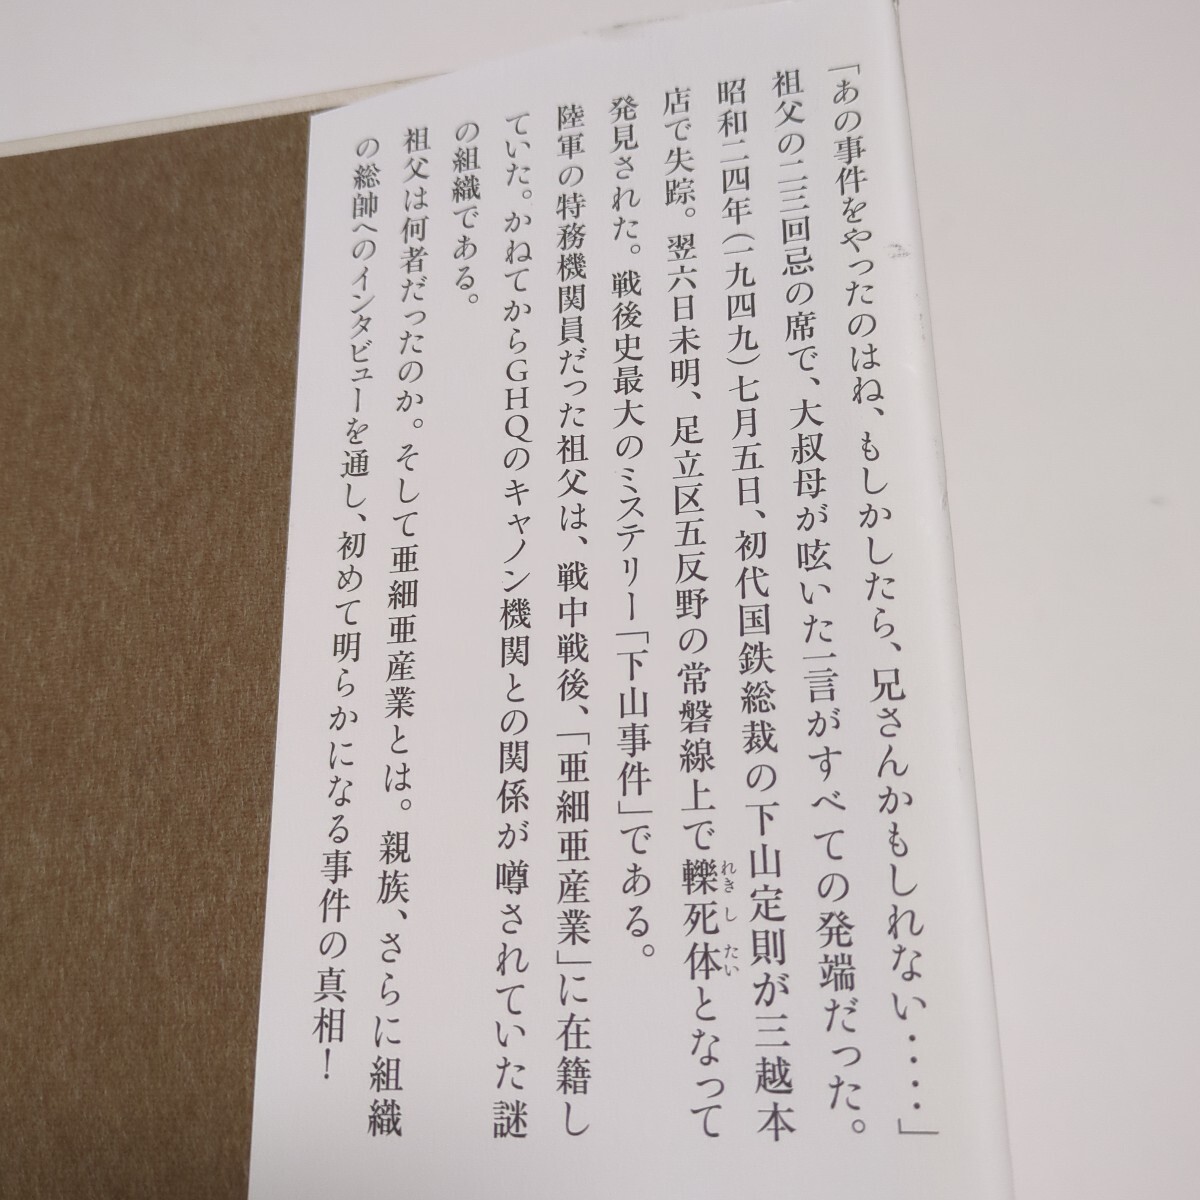 「あの事件をやったのはね、もしかしたら、兄さんかもしれない‥‥」
祖父の二三回忌の席で、大叔母が呟いた一言がすべての発端だった。
昭和二四年(一九四九)七月五日、初代国鉄総裁の下山定則が三越本
店で失踪。翌六日未明、足立区五反野の常磐線上で轢死体となって
れきしたい
発見された。戦後史最大のミステリー「下山事件」である。
陸軍の特務機関員だった祖父は、戦中戦後、「亜細亜産業」に在籍し
ていた。かねてからGHQのキャノン機関との関係が噂されていた謎
の組織である。
祖父は何者だったのか。そして亜細亜産業とは。親族、さらに組織
の総帥へのインタビューを通し、初めて明らかになる事件の真相!